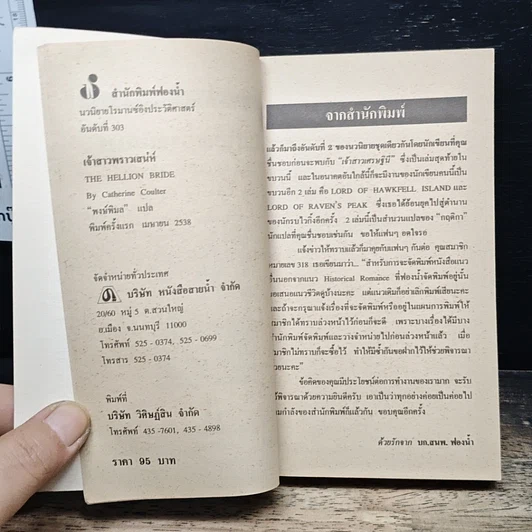 สำนักพิมพ์ฟองน้ำ
นวนิยายโรมานซ์อิงประวัติศาสตร์
อันดับที่ 303
เจ้าสาวพราวเสน่ห์
THE HELLION BRIDE
By Catherine Coulter
"พงษ์พิมล" แปล
พิมพ์ครั้งแรก เมษายน 2538
จัดจำหน่ายทั่วประเทศ
บริษัท หนังสือสายน้ำ จำกัด
20/60 หมู่ 5 ต.สวนใหญ่
อ.เมือง จ.นนทบุรี 11000
โทรศัพท์ 525 - 0374, 525 - 0699
โทรสาร 525 - 0374
พิมพ์ที่
บริษัท วิศิษฏ์สิน จำกัด
โทรศัพท์ 435 -7601, 435 - 4898
ราคา 95 บาท
จากสำนักพิมพ์
แล้วก็มาถึงอันดับที่ 2 ของนวนิยายชุดเดียวกันโดยนักเขียนที่คุณ
ชื่นชอบก่อนจะพบกับ "เจ้าสาวเศรษฐินี" ซึ่งเป็นเล่มสุดท้ายใน
ขบวนนี้ และในอนาคตอันใกล้นี้ก็จะมีงานของนักเขียนคนนี้เป็น
ขบวนอีก 2 เล่ม คือ LORD OF HAWKFELL ISLAND และ
LORD OF RAVEN'S PEAK ซึ่งเธอได้ย้อนยุคไปสู่ตำนาน
ของนักรบไวกิ้งอีกครั้ง 2 เล่มนี้เป็นสำนวนแปลของ "กฤติกา"
นักแปลที่คุณชื่นชอบเช่นกัน ขอให้แฟนๆ อดใจรอ
แจ้งข่าวให้ทราบแล้วก็มาคุยกับแฟนๆ กันต่อ คุณสมาชิก
หมายเลข 318 เธอเขียนมาว่า... "สำหรับการจะจัดพิมพ์หนังสือแนว
อื่นนอกจากแนว Historical Romance ที่ฟองน้ำจัดพิมพ์อยู่นั้น
เสนอแนวชีวิตดูบ้างนะคะ แต่แนวเดิมก็อย่าเลิกพิมพ์เสียนะคะ
และถ้าจะกรุณาแจ้งเรื่องที่จะจัดพิมพ์หรืออยู่ในแผนการพิมพ์ให้
สมาชิกได้ทราบล่วงหน้าไว้ก่อนก็จะดี เพราะบางเรื่องได้มีบาง
สำนักพิมพ์จัดพิมพ์และวางจำหน่ายไปก่อนล่วงหน้าแล้ว เมื่อ
สมาชิกไม่ทราบก็จะซื้อไว้ ทำให้มีซ้ำกันขอฝากไว้ให้ช่วยพิจารณา
นะคะ"
ข้อคิดของคุณมีประโยชน์ต่อการทำงานของเรามาก จะรับ
พิจารณาด้วยความยินดีครับ เอาเป็นว่าทุกอย่างค่อยเป็นค่อยไป
กำลังของสำนักพิมพ์ก็แล้วกัน ขอบคุณอีกครั้ง
ด้วยรักจาก บก.สนพ. ฟองน้ำ